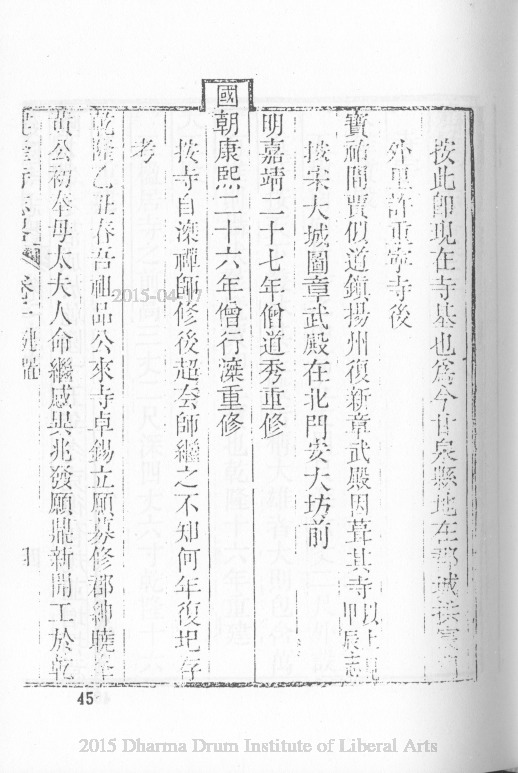 按此即現在寺基也爲今甘泉縣地在郡城拱宸
外里許重寧寺後
寶祐間賈似道鎮揚州復新章武殿因葺其寺以上見甲辰志
按宋大城圖章武殿在北門安大坊前
明嘉靖二十七年僧道秀重修
國朝康熙二十六年僧行濼重修
按寺自濼禪師修後超奈師繼之不知何年復圯存
考
乾隆乙丑春吾祖品公來寺卓錫立願募修郡紳曉峯
黃公初奉母太夫人命繼感異兆發願鼎新開工於乾
寺志 卷一建置 四
45
2015-04-17
2015 Dharma Drum Institute of Liberal Arts